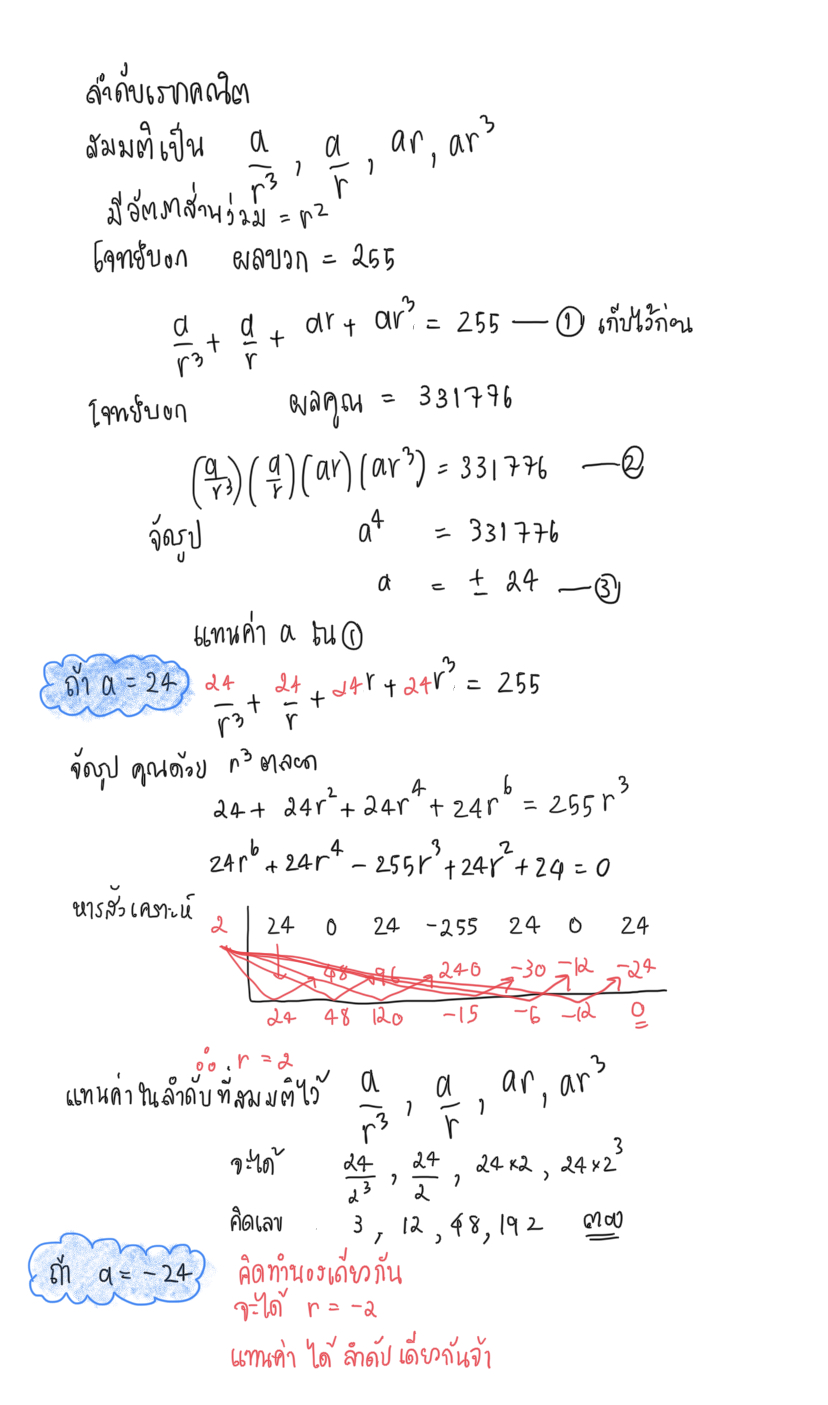 ลำดับเรขาคณิต
สมมติเป็น a/r³ , a/r , ar, ar³
มีอัตราส่วนร่วม = r²
โจทย์บอก ผลบวก = 255
a/r³ + a/r + ar + ar³ = 255 — ① เก็บไว้ก่อน
โจทย์บอก ผลคูณ = 331776
(a/r³)(a/r)(ar)(ar³) = 331776 — ②
จัดรูป a⁴ = 331776
a = ± 24 — ③
แทนค่า a ใน ①
ถ้า a = 24 24/r³ + 24/r + 24r + 24r³ = 255
จัดรูป คูณด้วย r³ ตลอด
24 + 24r² + 24r⁴ + 24r⁶ = 255r³
24r⁶ + 24r⁴ - 255r³ + 24r² + 24 = 0
หารสังเคราะห์ 2 24 0 24 -255 24 0 24
48 96 240 -30 -12 -24
24 48 120 -15 -6 -12 0
∴ r = 2
แทนค่าในลำดับที่สมมติไว้ a/r³ , a/r , ar, ar³
จะได้ 24/2³ , 24/2 , 24×2 , 24×2³
คิดเลข 3 , 12 , 48, 192 ตอบ
ถ้า a = -24 คิดทำนองเดียวกัน
จะได้ r = -2
แทนค่า ได้ ลำดับ เดียวกันจ้า